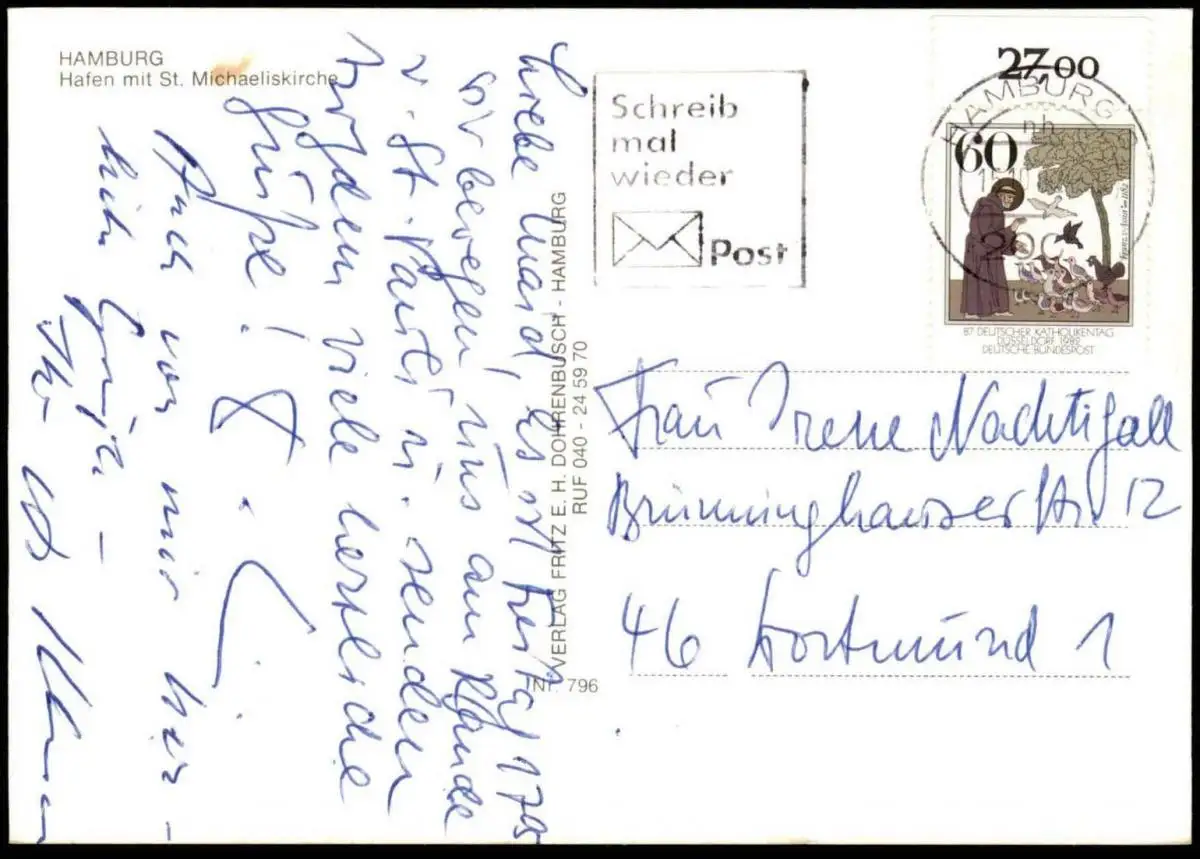 HAMBURG
Hafen mit St. Michaeliskirche
Liebe Maria, es ist Freitag, 17
wir bewegen uns am Rande
v. St. Pauli u. senden
viele herzliche
Grüße!
Auch von mir herz-
lich
Ihr
VERLAG FRITZ E. H. DÖHRENBUSCH - HAMBURG
RUF 040 - 24 59 70
Nr. 796
Schreib
mal
wieder
Post
27,00
HAMBURG
nh
200
60
87. DEUTSCHER KATHOLIKENTAG
DÜSSELDORF 1982
DEUTSCHE BUNDESPOST
Frau Irene Nachtigall
Brünninghauser Str. 12
46 Dortmund 1